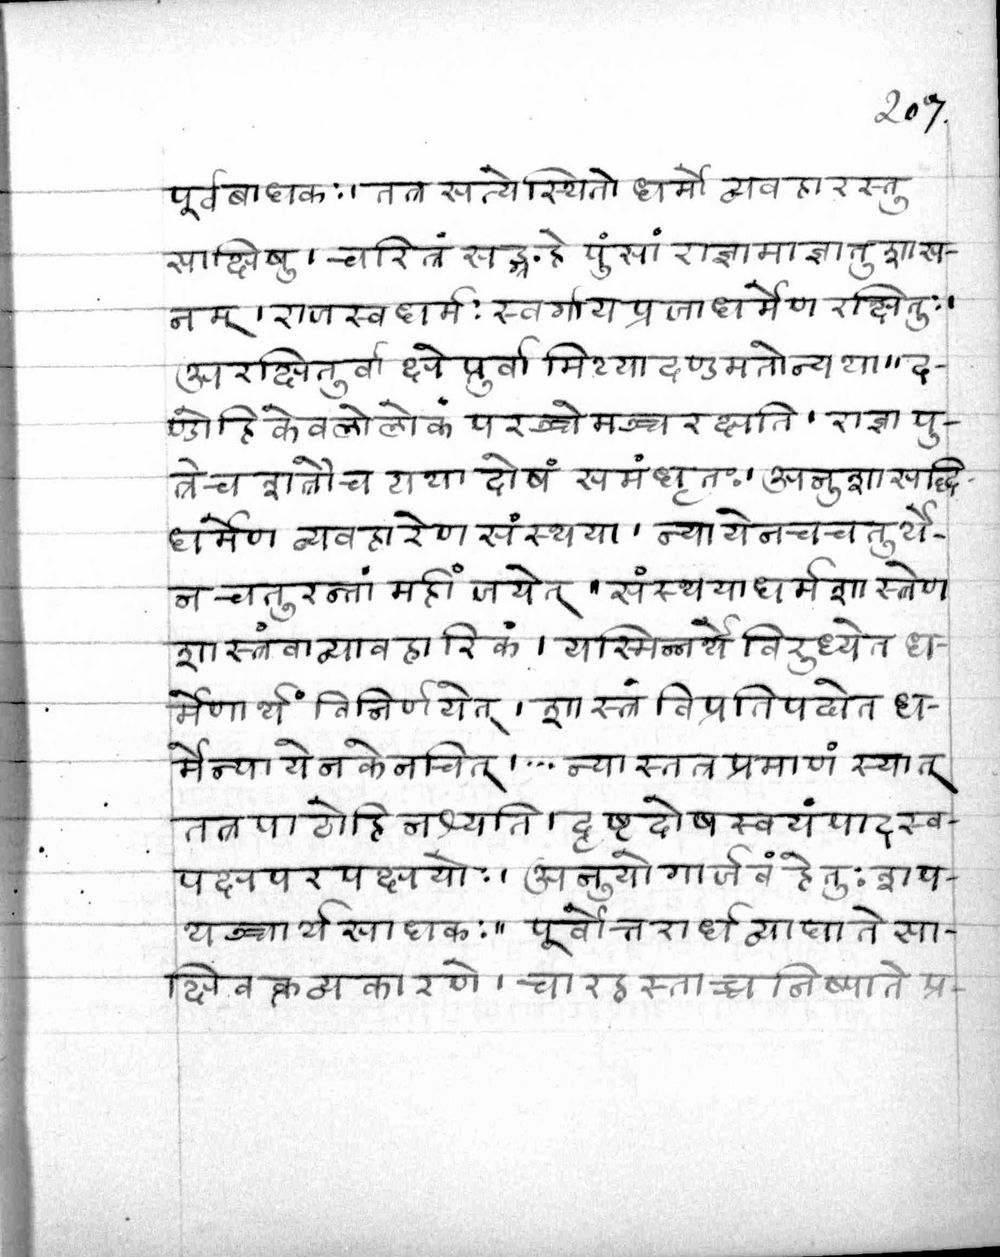 207.
पूर्वबाधकः। तत्र सत्येस्थितो धर्मो व्यवहारस्तु
साक्षिषु। चरित्रं सङ्ग्रहे पुंसां राज्ञामाज्ञातु शास-
नम्। राजस्वधर्मः स्वर्गाय प्रजाधर्मेण रक्षितुः।
अरक्षितुर्वा क्षेप्तुर्वा मिथ्यादण्डमतोन्यथा॥ द-
ण्डोहि केवलो लोकं परञ्चेमञ्च रक्षति। राज्ञा पु-
त्रेच शत्रौच यथा दोषं समंधृतः। अनुशासद्धि-
धर्मेण व्यवहारेण संस्थया। न्यायेनचचतुर्थे-
न चतुरन्तां महीं जयेत्॥ संस्थयाधर्मशास्त्रेण
शास्त्रंवाव्यावहारिकं। यस्मिन्नर्थे विरुध्येत ध-
र्मेणार्थं विनिर्णयेत्। शास्त्रं विप्रतिपद्येत ध-
र्मेन्यायेन केनचित्। ... न्यास्तत्र प्रमाणं स्यात्
तत्र पाठोहि नश्यति। दृष्टदोष स्वयंपाद स्व-
पक्षपरपक्षयोः। अनुयोगार्जवं हेतुः शप-
थञ्चार्थसाधकः॥ पूर्वोत्तरार्धव्याघाते सा-
क्षिवक्तव्यकारणे। चारहस्ताच्च निष्पाते प्र-